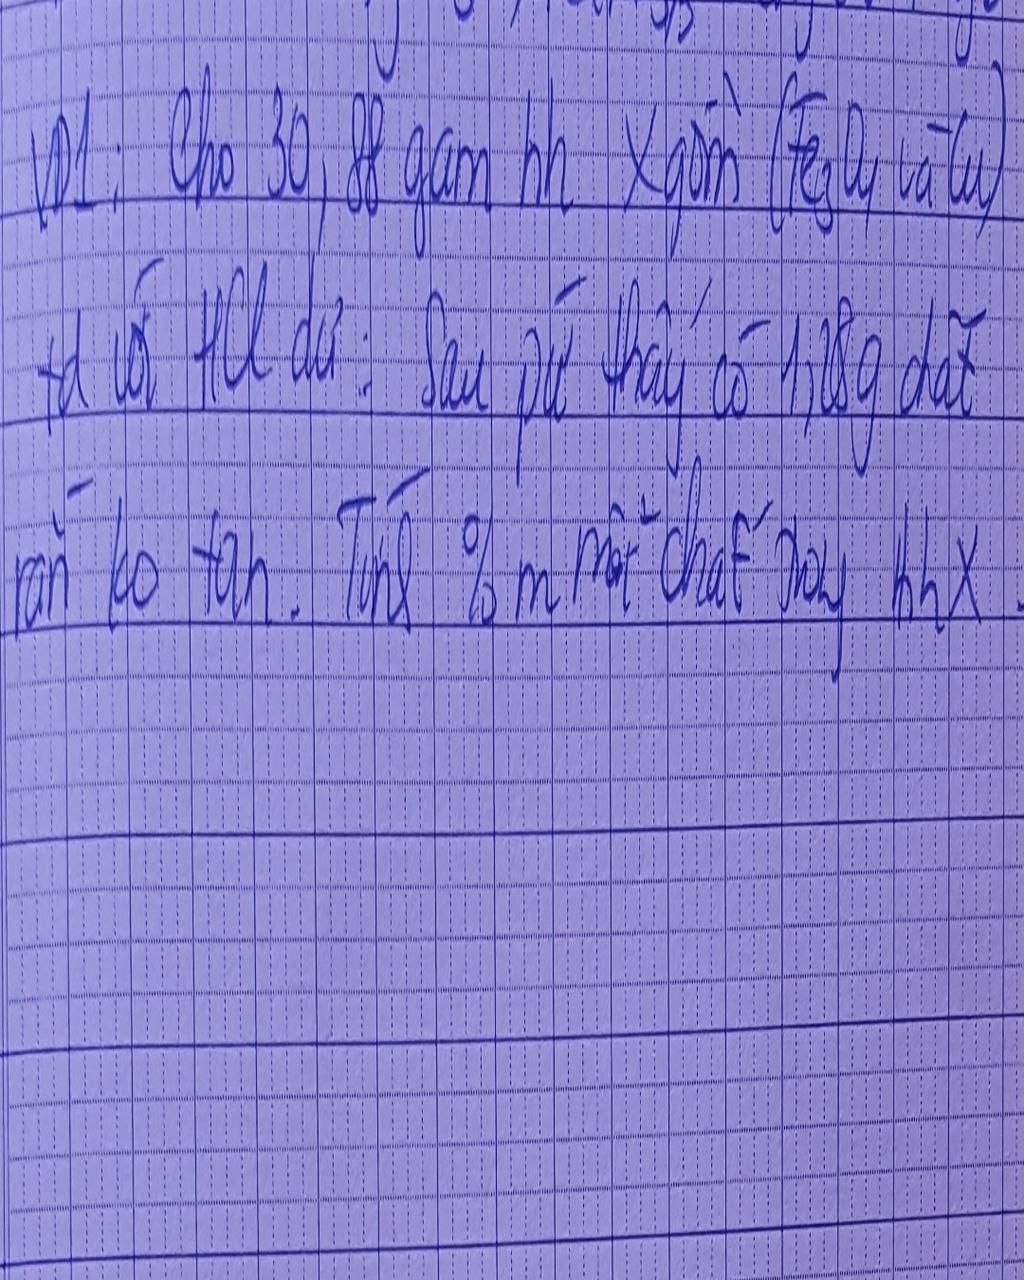 VD1: Cho 30,88 gam hh X gồm (Fe3O4 và Cu)
td với HCl dư: Sau pứ thấy có 1,28g chất
rắn ko tan. Tính % m mỗi chất trong hh X.